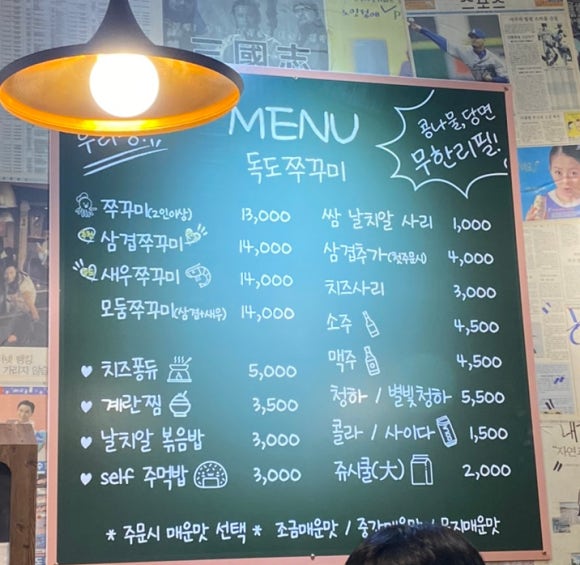 三國志
MENU
독도쭈꾸미
콩나물,당면
무한리필!
쭈꾸미(2인이상) 13,000
삼겹쭈꾸미 14,000
새우쭈꾸미 14,000
모둠쭈꾸미(삼겹+새우) 14,000
치즈퐁듀 5,000
계란찜 3,500
날치알 볶음밥 3,000
self 주먹밥 3,000
쌈 날치알 사리 1,000
삼겹추가(첫주문시) 4,000
치즈사리 3,000
소주 4,500
맥주 4,500
청하 / 별빛청하 5,500
콜라 / 사이다 1,500
쥬시쿨(大) 2,000
* 주문시 매운맛 선택 * 조금매운맛 / 중간매운맛 / 무지매운맛